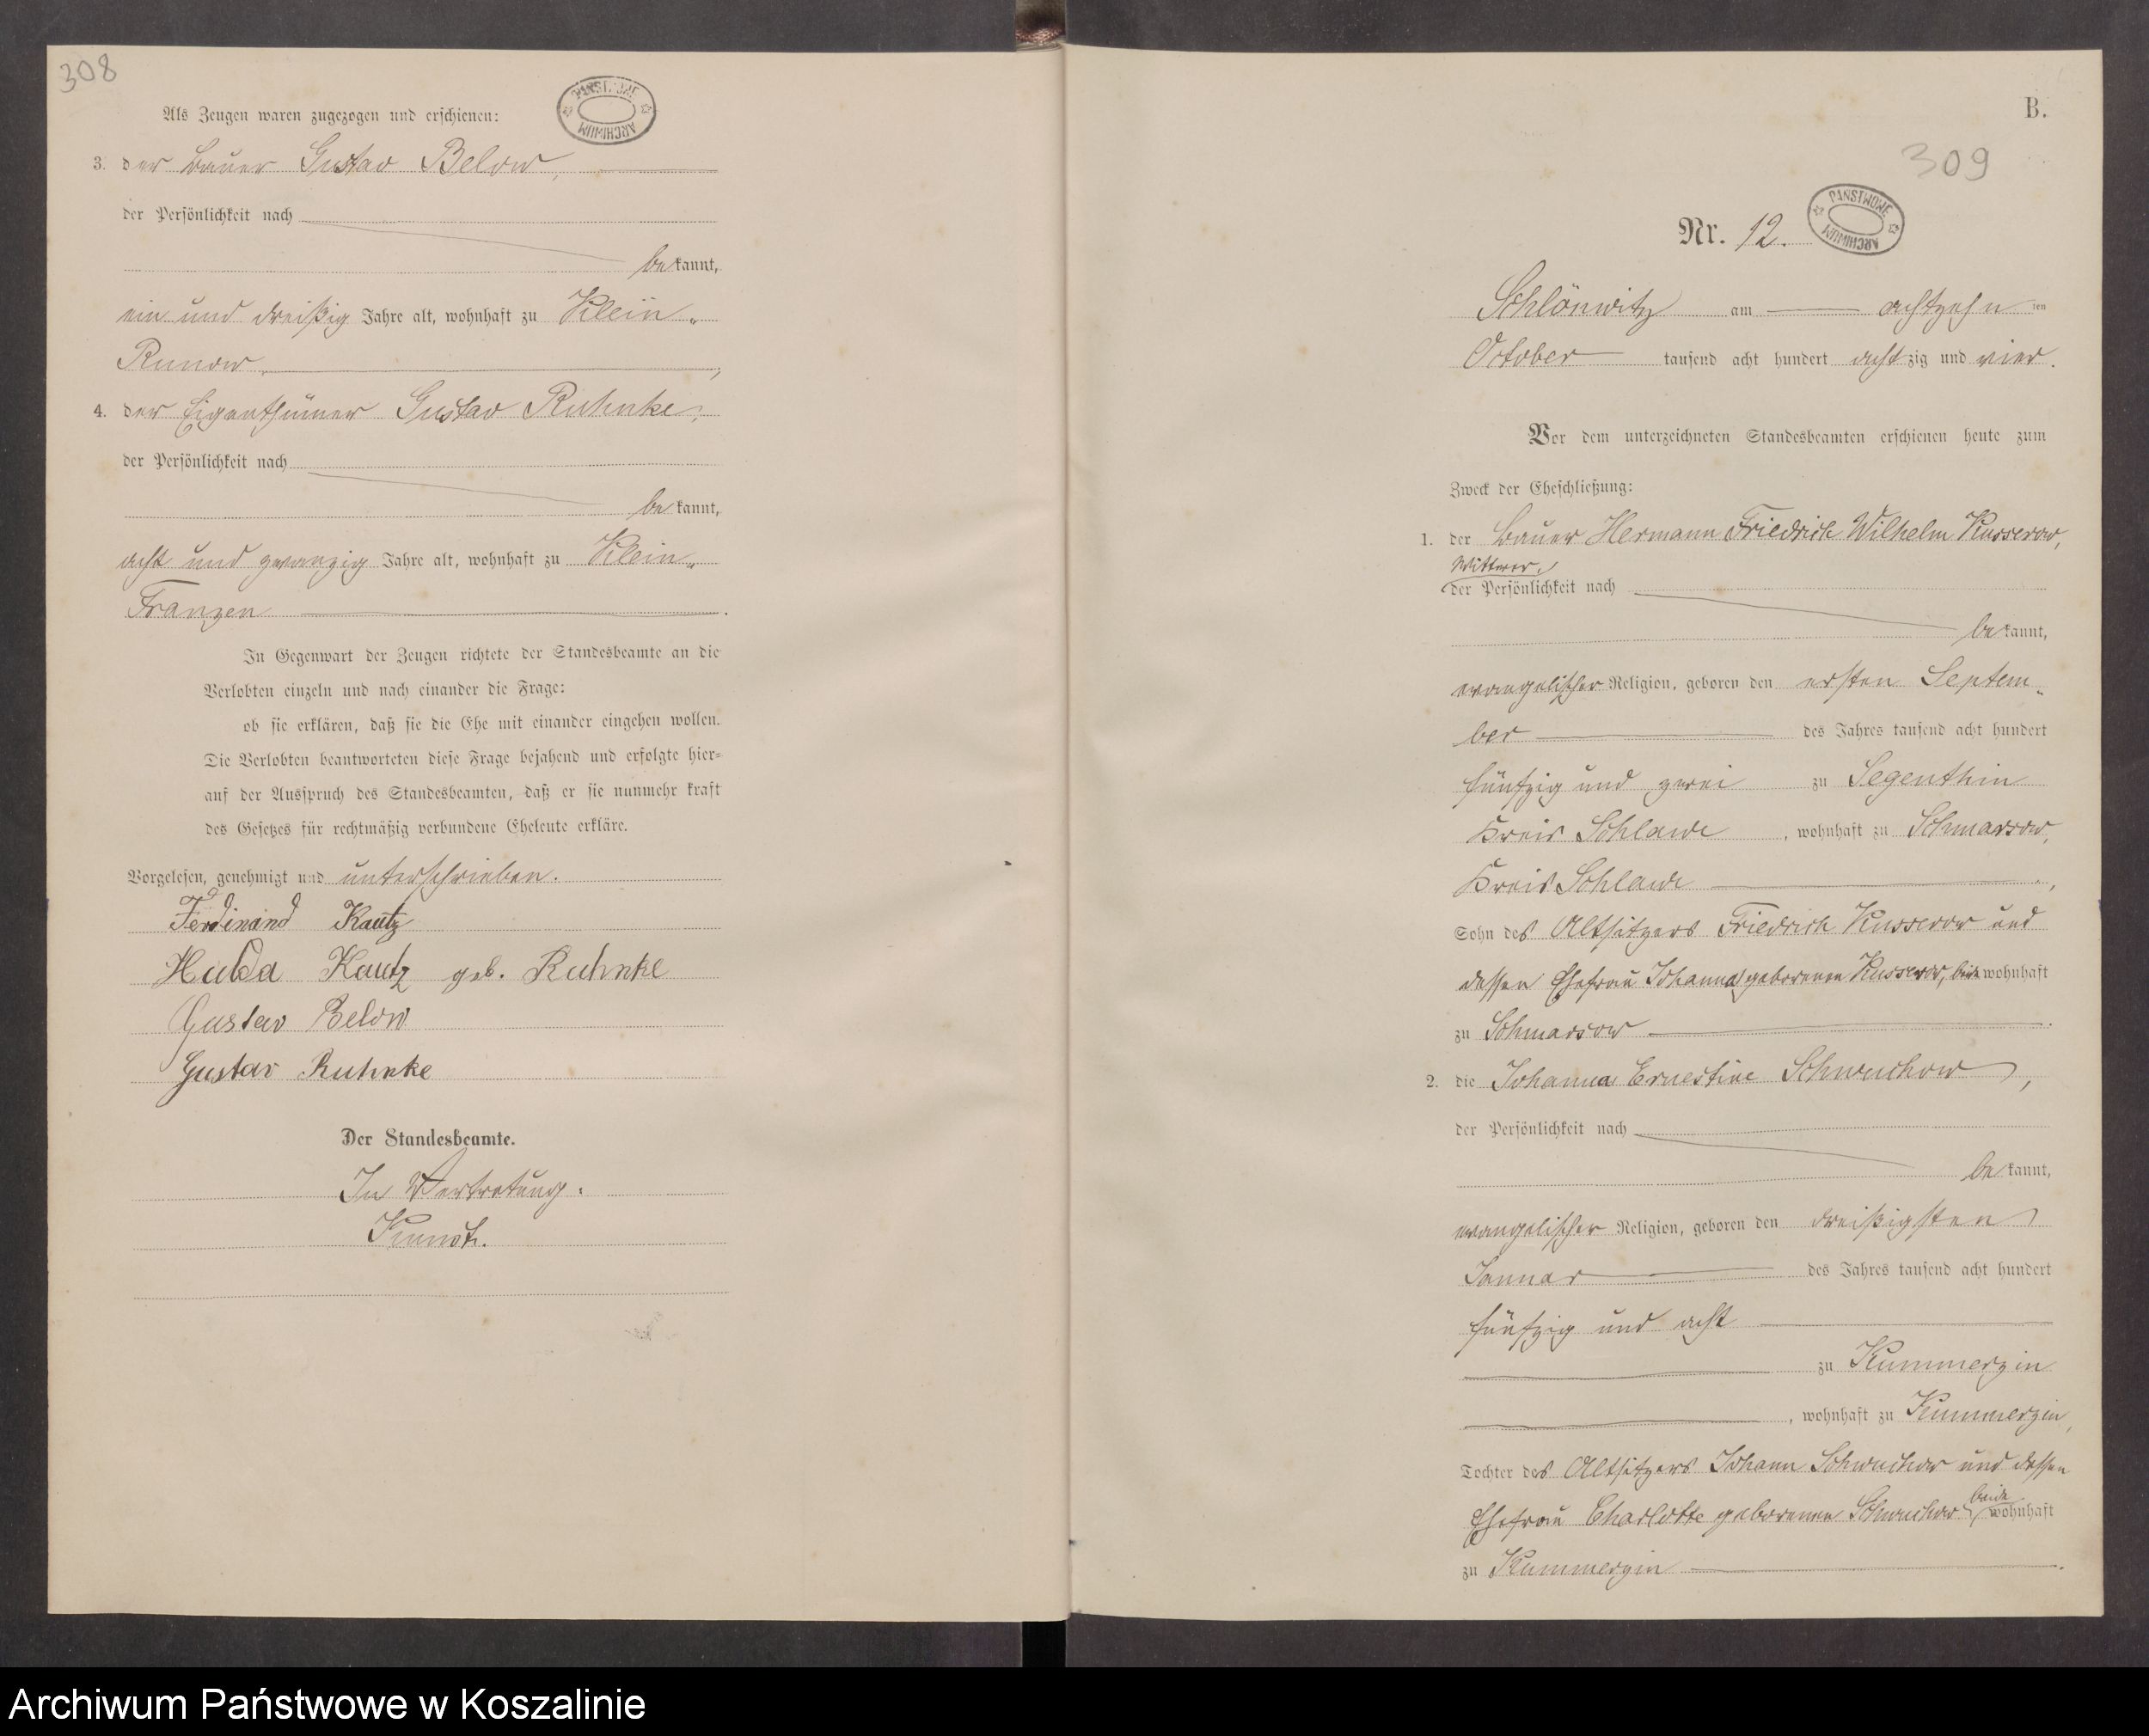 308
Als Zeugen waren zugezogen und erschienen:
PAŃSTWOWE ARCHIWUM
3. der Bauer Gustav Below,
der Persönlichkeit nach
bekannt,
ein und dreißig Jahre alt, wohnhaft zu Klein-
Runow,
4. der Eigenthümer Gustav Ruhnke,
der Persönlichkeit nach
bekannt,
acht und zwanzig Jahre alt, wohnhaft zu Klein-
Franzen
In Gegenwart der Zeugen richtete der Standesbeamte an die
Verlobten einzeln und nach einander die Frage:
ob sie erklären, daß sie die Ehe mit einander eingehen wollen.
Die Verlobten beantworteten diese Frage bejahend und erfolgte hier-
auf der Ausspruch des Standesbeamten, daß er sie nunmehr kraft
des Gesetzes für rechtmäßig verbundene Eheleute erkläre.
Vorgelesen, genehmigt und unterschrieben.
Ferdinand Kautz
Hulda Kautz geb. Ruhnke
Gustav Below
Gustav Ruhnke
Der Standesbeamte.
In Vertretung.
B.
309
PAŃSTWOWE ARCHIWUM
Nr. 12.
Schlönwitz am achtzehnten
October tausend acht hundert achtzig und vier.
Vor dem unterzeichneten Standesbeamten erschienen heute zum
Zweck der Eheschließung:
1. der Bauer Hermann Friedrich Wilhelm Kusserow,
Wittwer,
der Persönlichkeit nach
bekannt,
evangelischer Religion, geboren den ersten Septem-
ber des Jahres tausend acht hundert
fünfzig und zwei zu Segenthin
Kreis Schlawe, wohnhaft zu Schmarsow,
Kreis Schlawe,
Sohn des Altsitzers Friedrich Kusserow und
dessen Ehefrau Johanna geborenen Kusserow, beide wohnhaft
zu Schmarsow.
2. die Johanna Ernestine Schwuchow,
der Persönlichkeit nach
bekannt,
evangelischer Religion, geboren den dreißigsten
Januar des Jahres tausend acht hundert
fünfzig und acht
zu Kummerzin
, wohnhaft zu Kummerzin,
Tochter des Altsitzers Johann Schwuchow und dessen
Ehefrau Charlotte geborenen Schwuchow beide wohnhaft
zu Kummerzin.
Archiwum Państwowe w Koszalinie